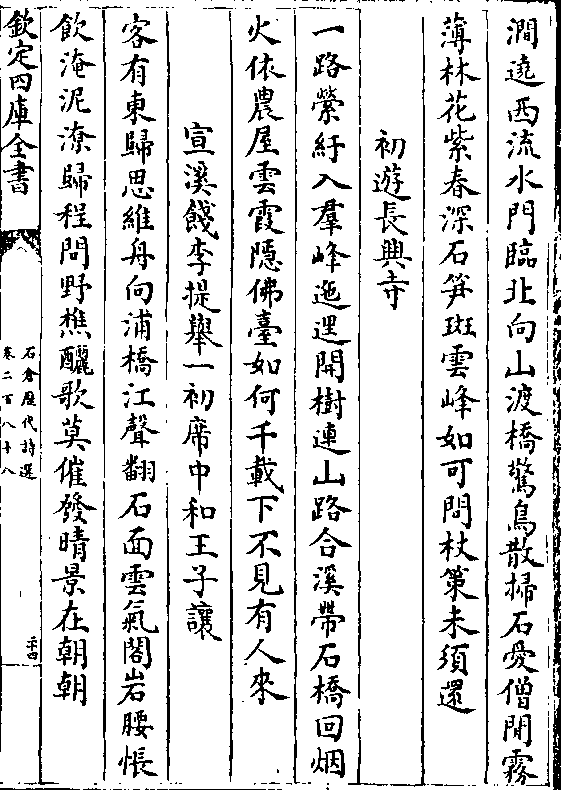 澗遶西流水門臨北向山渡橋驚鳥散掃石愛僧閒霧
薄林花紫春深石笋斑雲峰如可問杖策未須還
初遊長興寺
一路縈紆入羣峰迤邐開樹連山路合溪帶石橋回烟
火依農屋雲霞隱佛臺如何千載下不見有人來
宣溪餞李提舉一初席中和王子讓
客有東歸思維舟向浦橋江聲翻石面雲氣閣岩腰悵
飲淹泥潦歸程問野樵驪歌莫催發晴景在朝朝
欽定四庫全書
石倉歷代詩選
卷二百八十八
二十四